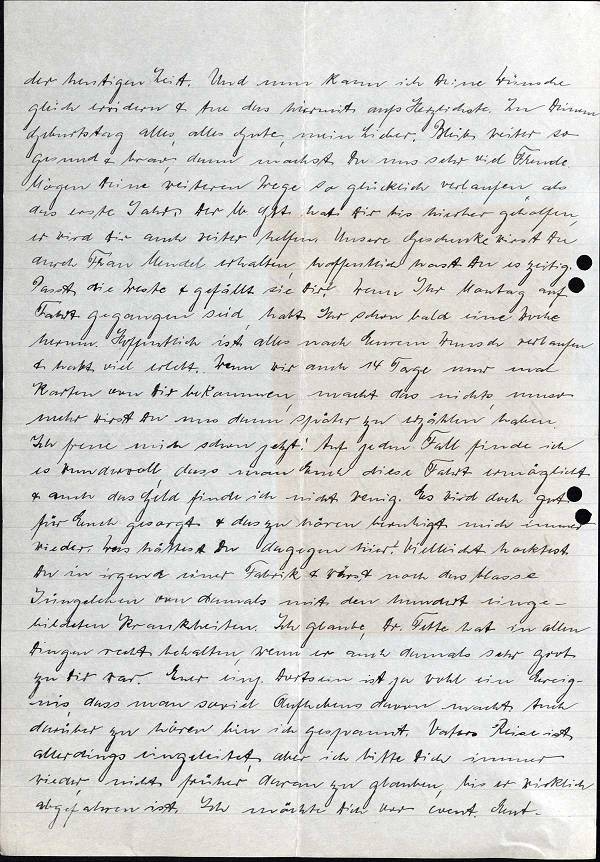 der heutigen Zeit. Und nun kann ich Deine Wünsche
gleich erwidern & tue das hiermit aufs Herzlichste. Zu Deinem
Geburtstag alles, alles Gute, mein Lieber. Bleibe weiter so
gesund & brav, dann machst Du uns sehr viel Freude.
Mögen Deine weiteren Wege so glücklich verlaufen, als
das erste Jahr. Der lb. Gtt. hat Dir bis hierher geholfen,
er wird Dir auch weiter helfen. Unsere Geschenke wirst Du
durch Frau Mendel erhalten, hoffentlich hast Du es zeitig.
Passt die Weste & gefällt sie Dir? Wenn Ihr Montag auf
Fahrt gegangen seid, habt Ihr schon bald eine Woche
herum. Hoffentlich ist alles nach Eurem Wunsch verlaufen
& habt viel erlebt. Wenn wir auch 14 Tage nur mal
Karten von Dir bekommen, macht das nichts, umso
mehr wirst Du uns dann später zu erzählen haben.
Ich freue mich schon jetzt! Auf jeden Fall finde ich
es wundervoll, dass man Euch diese Fahrt ermöglicht
& auch das Geld finde ich nicht wenig. Es wird doch gut
für Euch gesorgt & das zu hören beruhigt mich immer
wieder. Was hättest Du dagegen hier? Vielleicht hocktest
Du in irgend einer Fabrik & wärst noch das blasse
Jüngelchen von damals mit den hundert einge-
bildeten Krankheiten. Ich glaube, Dr. Tette hat in allen
Dingen recht behalten, wenn er auch damals sehr grob
zu Dir war. Euer einj. Dortsein ist ja wohl ein Ereig-
nis, dass man soviel Aufhebens davon macht. Auch
darüber zu hören bin ich gespannt. Vaters Reise ist
allerdings eingeleitet, aber ich bitte Dich immer
wieder, nicht früher daran zu glauben, bis er wirklich
abgefahren ist. Ich möchte Dich vor event. Ent-